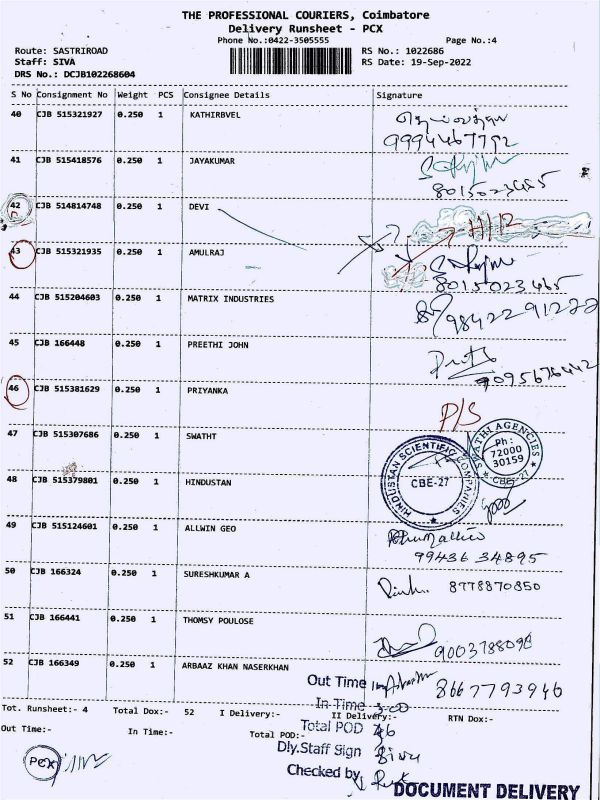 THE PROFESSIONAL COURIERS, Coimbatore
Delivery Runsheet - PCX
Phone No.:0422-3505555 Page No.:4
Route: SASTRIROAD RS No.: 1022686
Staff: SIVA RS Date: 19-Sep-2022
DRS No.: DCJB102268604
S No Consignment No Weight PCS Consignee Details Signature
40 CJB 515321927 0.250 1 KATHIRBVEL
9994467752
41 CJB 515418576 0.250 1 JAYAKUMAR
8015023465
42 CJB 514814748 0.250 1 DEVI
43 CJB 515321935 0.250 1 AMULRAJ
8015023465
44 CJB 515204603 0.250 1 MATRIX INDUSTRIES
9842291222
45 CJB 166448 0.250 1 PREETHI JOHN
9095676442
46 CJB 515381629 0.250 1 PRIYANKA
P/S
47 CJB 515307686 0.250 1 SWATHT
SWATHI AGENCIES
Ph :
72000
30159
CBE-27
48 CJB 515379801 0.250 1 HINDUSTAN
HINDUSTAN SCIENTIFIC COMPANIES
CBE-27
49 CJB 515124601 0.250 1 ALLWIN GEO
99436 34895
50 CJB 166324 0.250 1 SURESHKUMAR A 8778870850
51 CJB 166441 0.250 1 THOMSY POULOSE
9003788098
52 CJB 166349 0.250 1 ARBAAZ KHAN NASERKHAN
8667793946
Out Time
In Time 3-00
Tot. Runsheet:- 4 Total Dox:- 52 I Delivery:- II Delivery:- RTN Dox:-
Total POD 46
Out Time:- In Time:- Total POD:-
Dly.Staff Sign Siva
PCX
Checked by
DOCUMENT DELIVERY